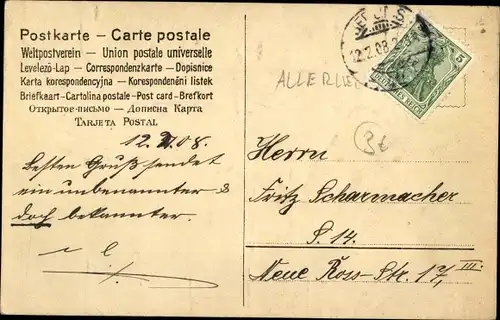 Postkarte – Carte postale
Weltpostverein – Union postale universelle
Levelezö-Lap – Correspondenzkarte – Dopisnice
Karta korespondencyjna – Korespondenční lístek
Briefkaart – Cartolina postale – Post card – Brefkort
Открытое-письмо – Дописна Карта
Tarjeta Postal
12.2.08.
Besten Gruß sendet
ein unbenannter &
doch bekannter.
12.2.08
5
ALLERLEI
3€
Herrn
Fritz Scharmacher
S. 14.
Neue Ross-Str. 17, III.